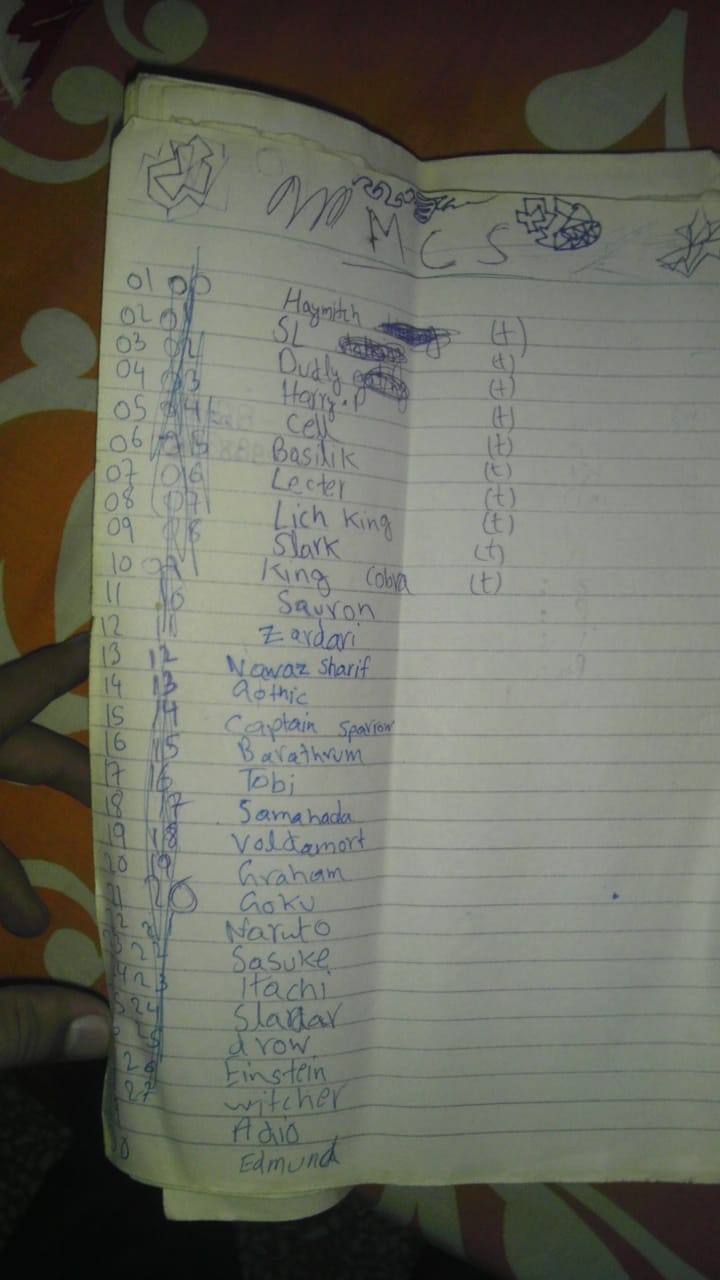 MCS
01 Haymitch (t)
02 SL (t)
03 Dudly (t)
04 Harry.P (t)
05 Cell (t)
06 Basilik (t)
07 Lecter (t)
08 Lich King (t)
09 Slark (t)
10 King Cobra (t)
11 Sauron
12 Zardari
13 12 Nawaz Sharif
14 13 Gothic
15 14 Captain Sparrow
16 15 Barathrum
17 16 Tobi
18 17 Samahada
19 18 Voldamort
20 19 Graham
20 Goku
Naruto
Sasuke
23 Itachi
24 Slardar
drow
26 Einstein
27 witcher
Adio
Edmund